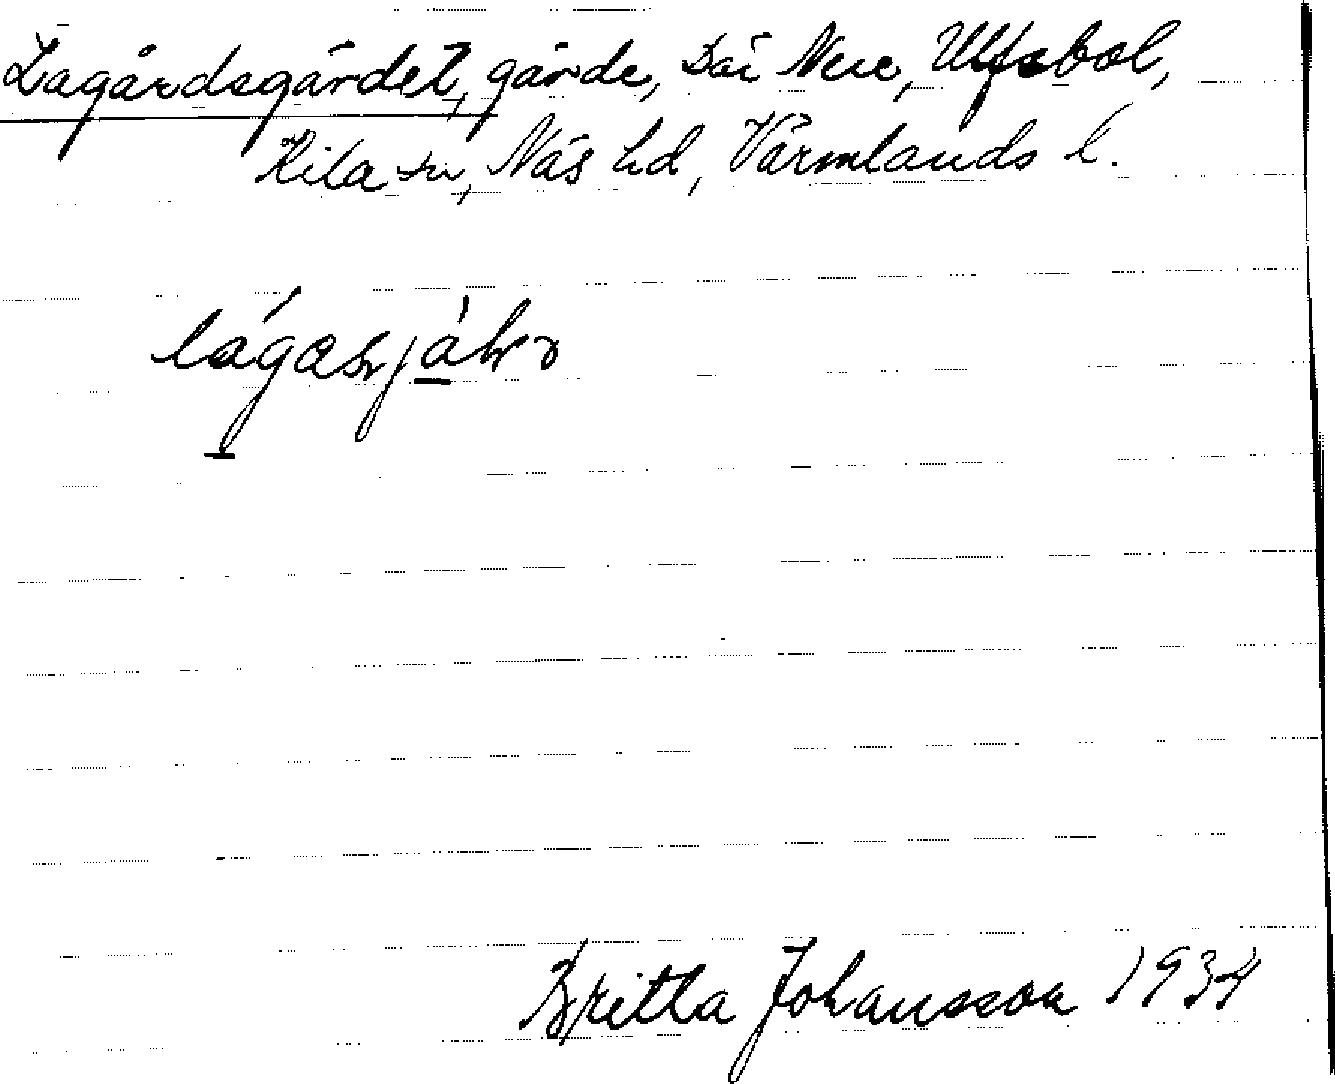 Lagårdsgärdet, gärde, Där Nere, Ulfsbol,
Kila sn, Näs hd, Värmlands l.
Britta Johansson 1934